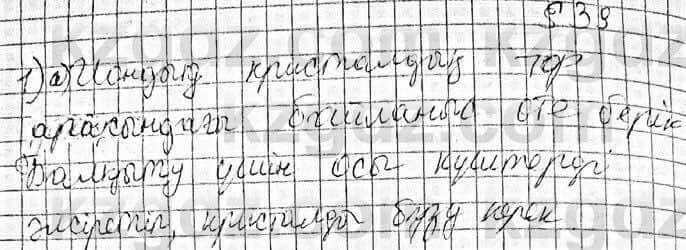 § 39
1) а) Иондық кристалдық тор
арасындағы байланыс өте берік
Балқыту үшін осы күштерді
әлсіретіп, кристалды бұзу керек